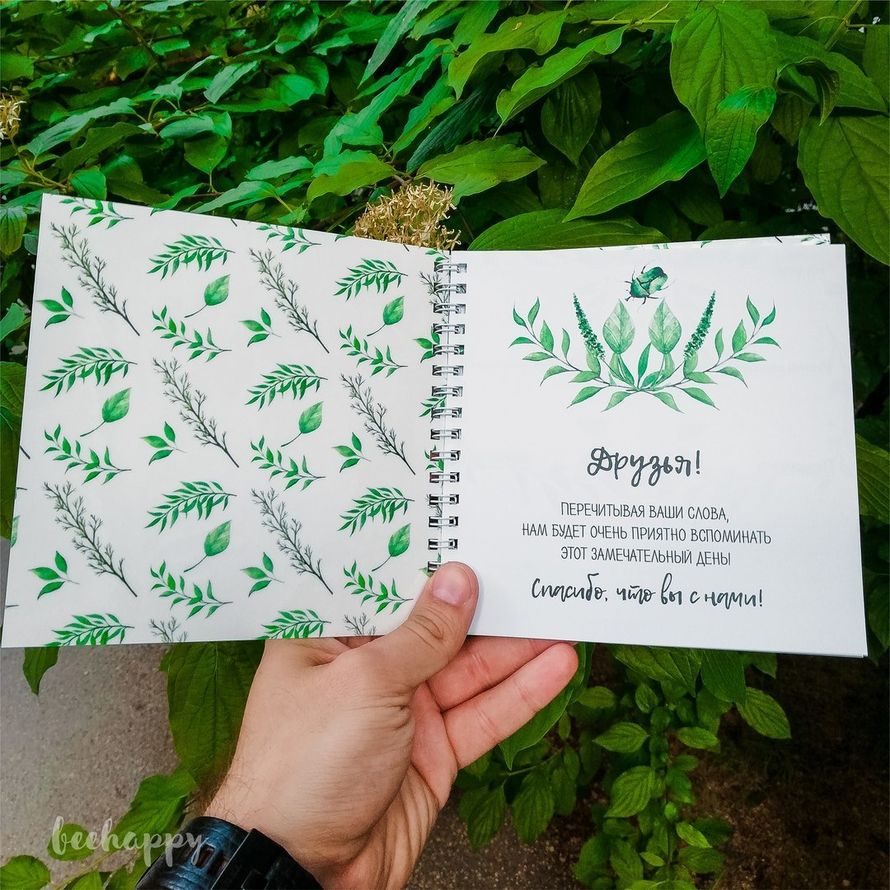 Друзья!
ПЕРЕЧИТЫВАЯ ВАШИ СЛОВА,
НАМ БУДЕТ ОЧЕНЬ ПРИЯТНО ВСПОМИНАТЬ
ЭТОТ ЗАМЕЧАТЕЛЬНЫЙ ДЕНЬ!
Спасибо, что вы с нами!
beehappy